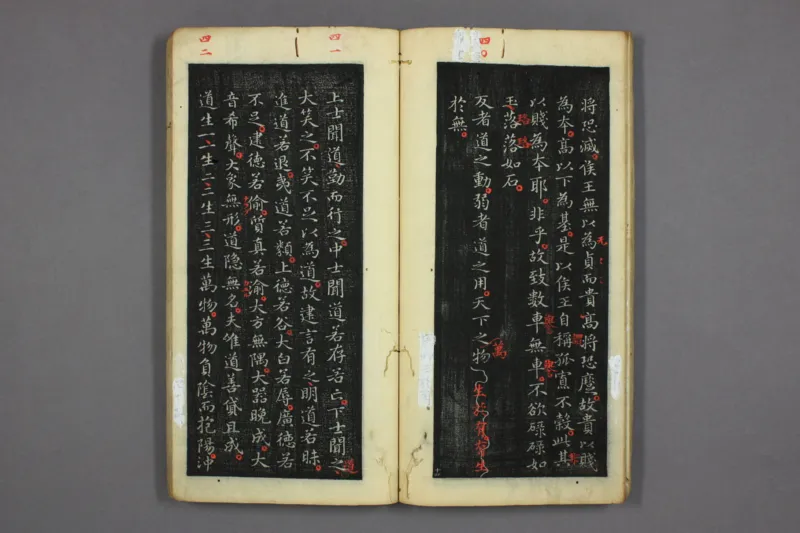 四〇
將恐滅侯王無以為貞而貴髙將恐蹷故貴以賤
為本髙以下為基是以侯王自稱孤寡不穀此其
以賤為本耶非乎故致數車無車不欲碌碌如
玉落落如石
反者道之動弱者道之用天下之物
於無
萬
四一
上士聞道勤而行之中士聞道若存若亡下士聞之
大笑之不笑不足以為道故建言有之明道若昧
進道若退夷道若類上德若谷大白若辱廣德若
不足建德若偷質真若渝大方無隅大器晚成大
音希聲大象無形道隱無名夫惟道善貸且成
道
四二
道生一一生二二生三三生萬物萬物負陰而抱陽沖